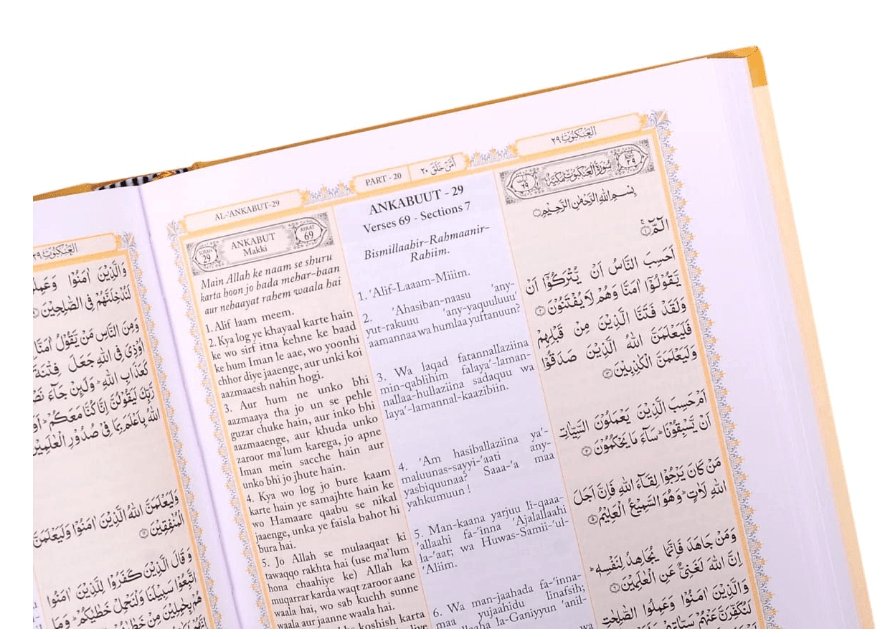 العنكبوت ٢٩
وَالَّذِيْنَ اٰمَنُوْا وَعَمِلُوا
لَنُدْخِلَنَّهُمْ فِى الصّٰلِحِيْنَ
وَمِنَ النَّاسِ مَنْ يَّقُوْلُ اٰمَنَّا
اُوْذِىَ فِى اللّٰهِ جَعَلَ فِتْنَةَ
كَعَذَابِ اللّٰهِ وَلَئِنْ جَآءَ نَصْرٌ
رَّبِّكَ لَيَقُوْلُنَّ اِنَّا كُنَّا مَعَكُمْ
اللّٰهُ بِاَعْلَمَ بِمَا فِىْ صُدُوْرِ الْعٰلَمِيْنَ
وَلَيَعْلَمَنَّ اللّٰهُ الَّذِيْنَ اٰمَنُوْا وَلَيَعْلَمَنَّ
الْمُنٰفِقِيْنَ
وَقَالَ الَّذِيْنَ كَفَرُوْا لِلَّذِيْنَ اٰمَنُوا
اتَّبِعُوْا سَبِيْلَنَا وَلْنَحْمِلْ خَطٰيٰكُمْ وَمَا
AL-'ANKABUT-29
PART - 20
اَمَّنْ خَلَقَ ٢٠
العنكبوت ٢٩
29
ANKABUT
Makki
69
Main Allah ke naam se shuru
karta hoon jo bada mehar-baan
aur nehaayat rahem waala hai
1. Alif laam meem.
2. Kya log ye khayaal karte hain
ke wo sirf itna kehne ke baad
ke hum Iman le aae, wo yoonhi
chhor diye jaaenge, aur unki koi
aazmaesh nahin hogi.
3. Aur hum ne unko bhi
aazmaaya tha jo un se pehle
guzar chuke hain, aur inko bhi
aazmaaenge, aur khuda unko
zaroor ma'lum karega, jo apne
Iman mein sacche hain aur
unko bhi jo jhute hain.
4. Kya wo log jo bure kaam
karte hain ye samajhte hain ke
wo Hamaare qaabu se nikal
jaaenge, unka ye faisla bahot hi
bura hai.
5. Jo Allah se mulaaqaat ki
tawaqqo rakhta hai (use ma'lum
hona chaahiye ke) Allah ka
muqarrar karda waqt zaroor aane
waala hai, wo sab kuchh sunne
waala aur jaanne waala hai.
koshish karta
ANKABUUT - 29
Verses 69 - Sections 7
Bismillaahir-Rahmaanir-
Rahiim.
1. 'Alif-Laaam-Miiim.
2. 'Ahasiban-naasu 'any-
yut-rakuuu 'any-yaquuluuu'
aamannaa wa humlaa yuftanuun?
3. Wa laqad fatannallaziina
min-qablihim falaya'-laman-
nallaa-hullaziina sadaquu wa
laya'-lamannal-kaazibiin.
4. 'Am hasiballaziina ya'-
maluunas-sayyi-'aati any-
yasbiquunaa? Saaa-'a maa
yahkumuun !
5. Man-kaana yarjuu li-qaaa-
'allaahi fa-'inna 'Ajalallaahi
la-'aat; wa Huwas-Samii-'ul-
'Aliim.
6. Wa man-jaahada fa-'inna-
maa yujaahidu linafsih;
la-Ganiyyun 'anil-
سُوْرَةُ الْعَنْكَبُوْتِ مَكِّيَّةٌ
بِسْمِ اللّٰهِ الرَّحْمٰنِ الرَّحِيْمِ
الٓمّٓ ۝١
اَحَسِبَ النَّاسُ اَنْ يُّتْرَكُوْٓا اَنْ
يَّقُوْلُوْٓا اٰمَنَّا وَهُمْ لَا يُفْتَنُوْنَ ۝٢
وَلَقَدْ فَتَنَّا الَّذِيْنَ مِنْ قَبْلِهِمْ
فَلَيَعْلَمَنَّ اللّٰهُ الَّذِيْنَ صَدَقُوْا
وَلَيَعْلَمَنَّ الْكٰذِبِيْنَ ۝٣
اَمْ حَسِبَ الَّذِيْنَ يَعْمَلُوْنَ السَّيِّاٰتِ
اَنْ يَّسْبِقُوْنَا سَآءَ مَا يَحْكُمُوْنَ ۝٤
مَنْ كَانَ يَرْجُوْا لِقَآءَ اللّٰهِ فَاِنَّ اَجَلَ
اللّٰهِ لَاٰتٍ وَهُوَ السَّمِيْعُ الْعَلِيْمُ ۝٥
وَمَنْ جَاهَدَ فَاِنَّمَا يُجَاهِدُ لِنَفْسِهٖ
اِنَّ اللّٰهَ لَغَنِىٌّ عَنِ الْعٰلَمِيْنَ ۝٦
وَالَّذِيْنَ اٰمَنُوْا وَعَمِلُوا الصّٰلِحٰتِ
لَنُكَفِّرَنَّ عَنْهُمْ